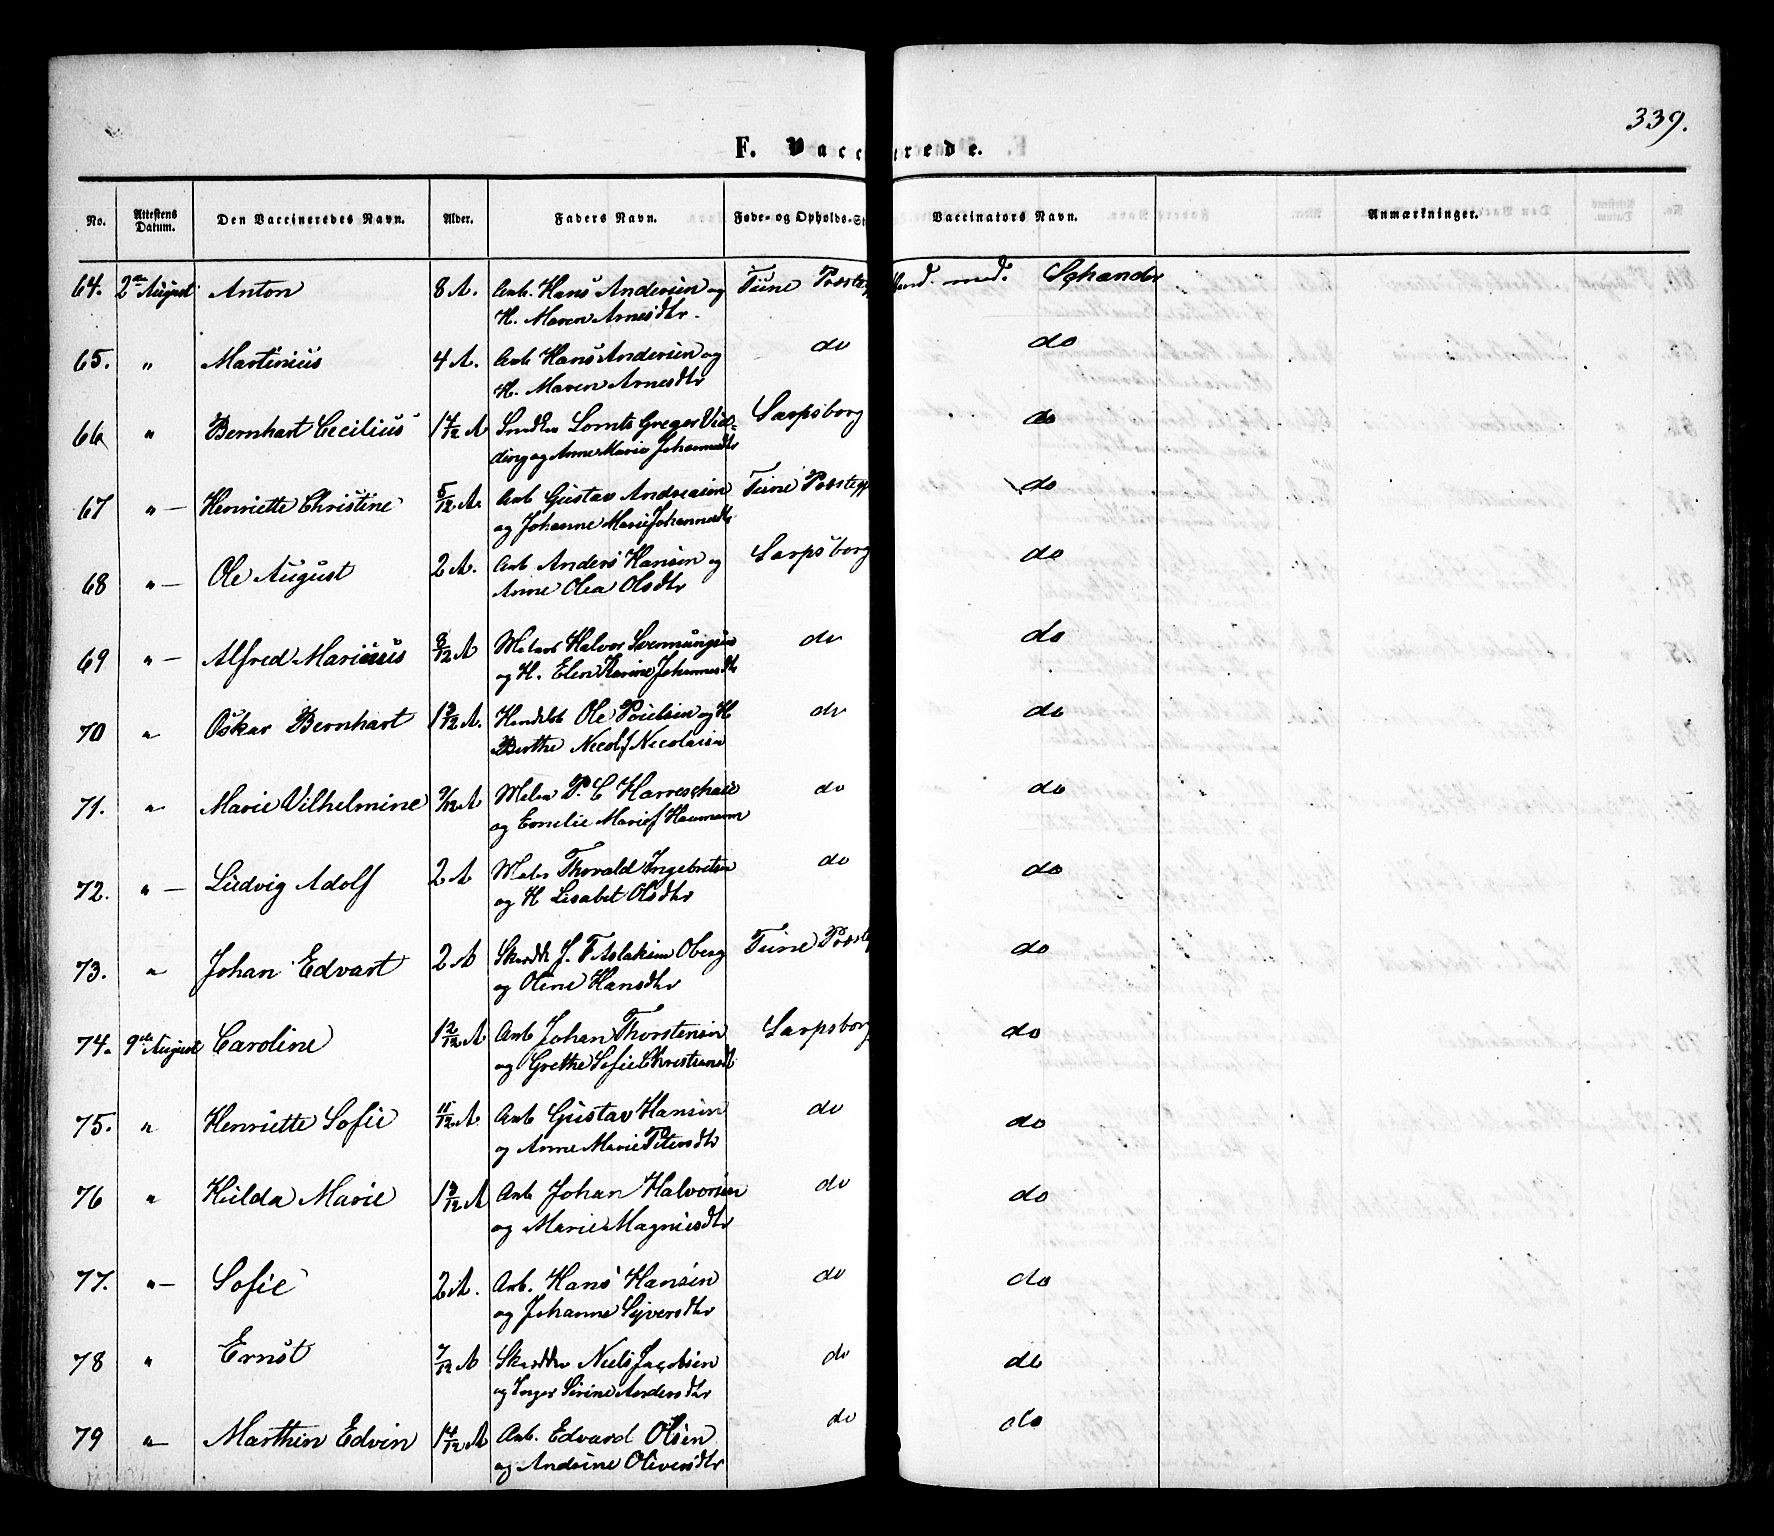 339.
F. Vacc rede.
No. Attestens Datum. Den Vaccineredes Navn. Alder. Faders Navn. Føde- og Opholds-St Vaccinators Navn. Anmærkninger.
64. 2den August Anton 8 A. Arb. Hans Andersen og Tune Præsteg med. Schander
H. Maren Arnesdtr.
65. " Martinius 4 A. Arb Hans Andersen og do do
H. Maren Arnesdtr
66 " Bernhart Cecilius 1 7/12 A Lornts Greger Vid- Sarpsborg do
ding og Anne Marie Johannesdtr
67 " — Henriette Christine 5/12 A. Arb Gustav Andreasen Tune Præstegj do
og Johanne Marie Johannesdtr
68 " — Ole August 2 A. Arb Anders Hansen og Sarpsborg do
Anne Olea Olsdtr
69 " — Alfred Marinius 8/12 A Halvor Svenungsen do do
og H. Elen Karine Johannesdtr
70 " Oskar Bernhart 1 9/12 A. Ole Poulsen og H do do
Berthe Nicolf Nicolaisen
71. " Marie Vilhelmine 9/12 A P. C do do
og Emelie Marie f Haumann
72. " — Ludvig Adolf 2 A Thorvald Ingebretsen do do
og H Lisabet Olsdtr
73. " Johan Edvart 2 A J. F Aslaksen Oberg Tune Præsteg do
og Oline Hansdtr
74. 9de August Caroline 1 2/12 A Arb Johan Thorstensen Sarpsborg do
og Grethe Sofie Christiansdt
75. " Henriette Sofie 11/12 A Arb Gustav Hansen do do
og Anne Marie Petersdtr
76 " Hulda Marie 1 9/12 A Arb Johan Halvorsen do do
og Marie Magnusdtr
77. " — Sofie 2 A. Arb. Hans Hansen do do
og Johanne Syversdtr
78 " Ernst 7/12 A Skrædder Niels Jacobsen do do
og Inger Sirine Andersdtr
79 " — Marthin Edvin 1 4/12 A Arb. Edvard Olsen do do
og Andrine Oliversdtr